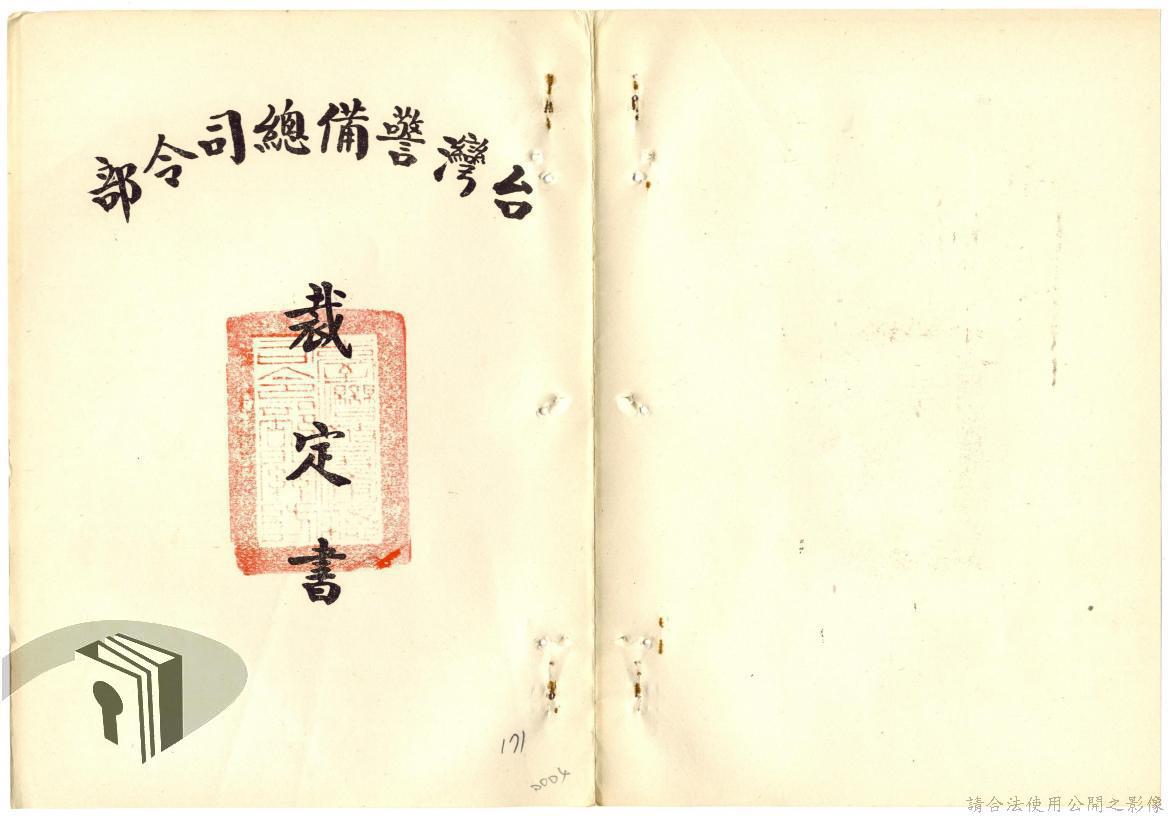 台灣警備總司令部
裁定書
171
0004
請合法使用公開之影像